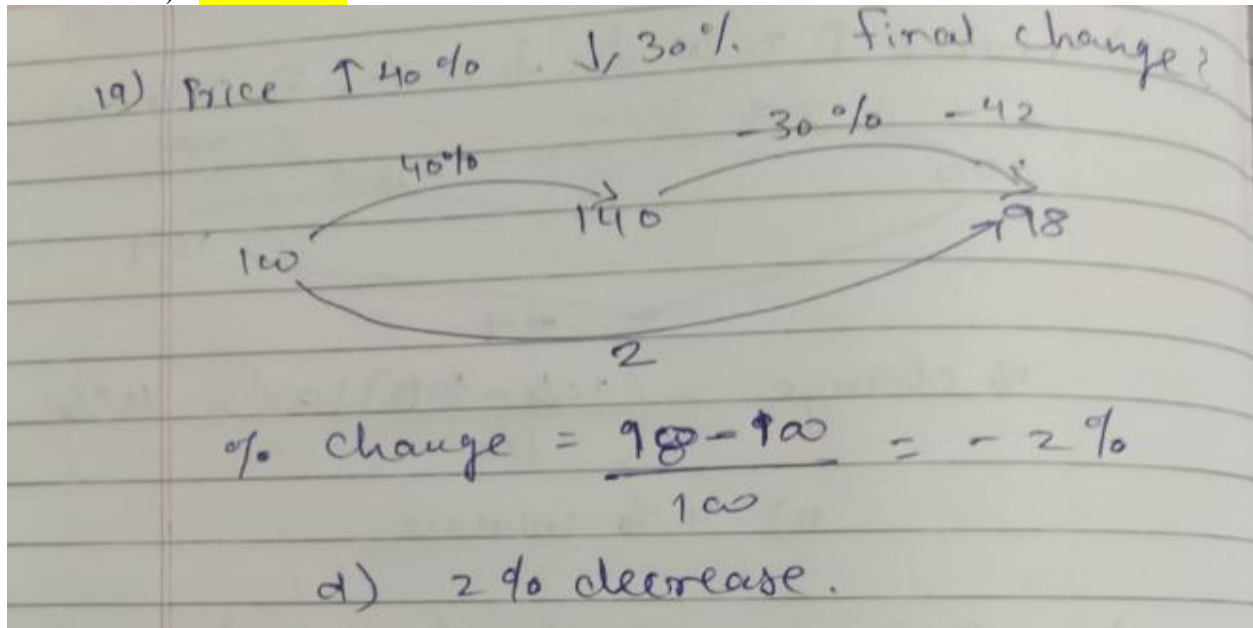 19) Price ↑ 40% . ↓ 30%. final change?
-30% -42
40%
140
98
100
2
% change = 98-100 = - 2%
100
d) 2% decrease.